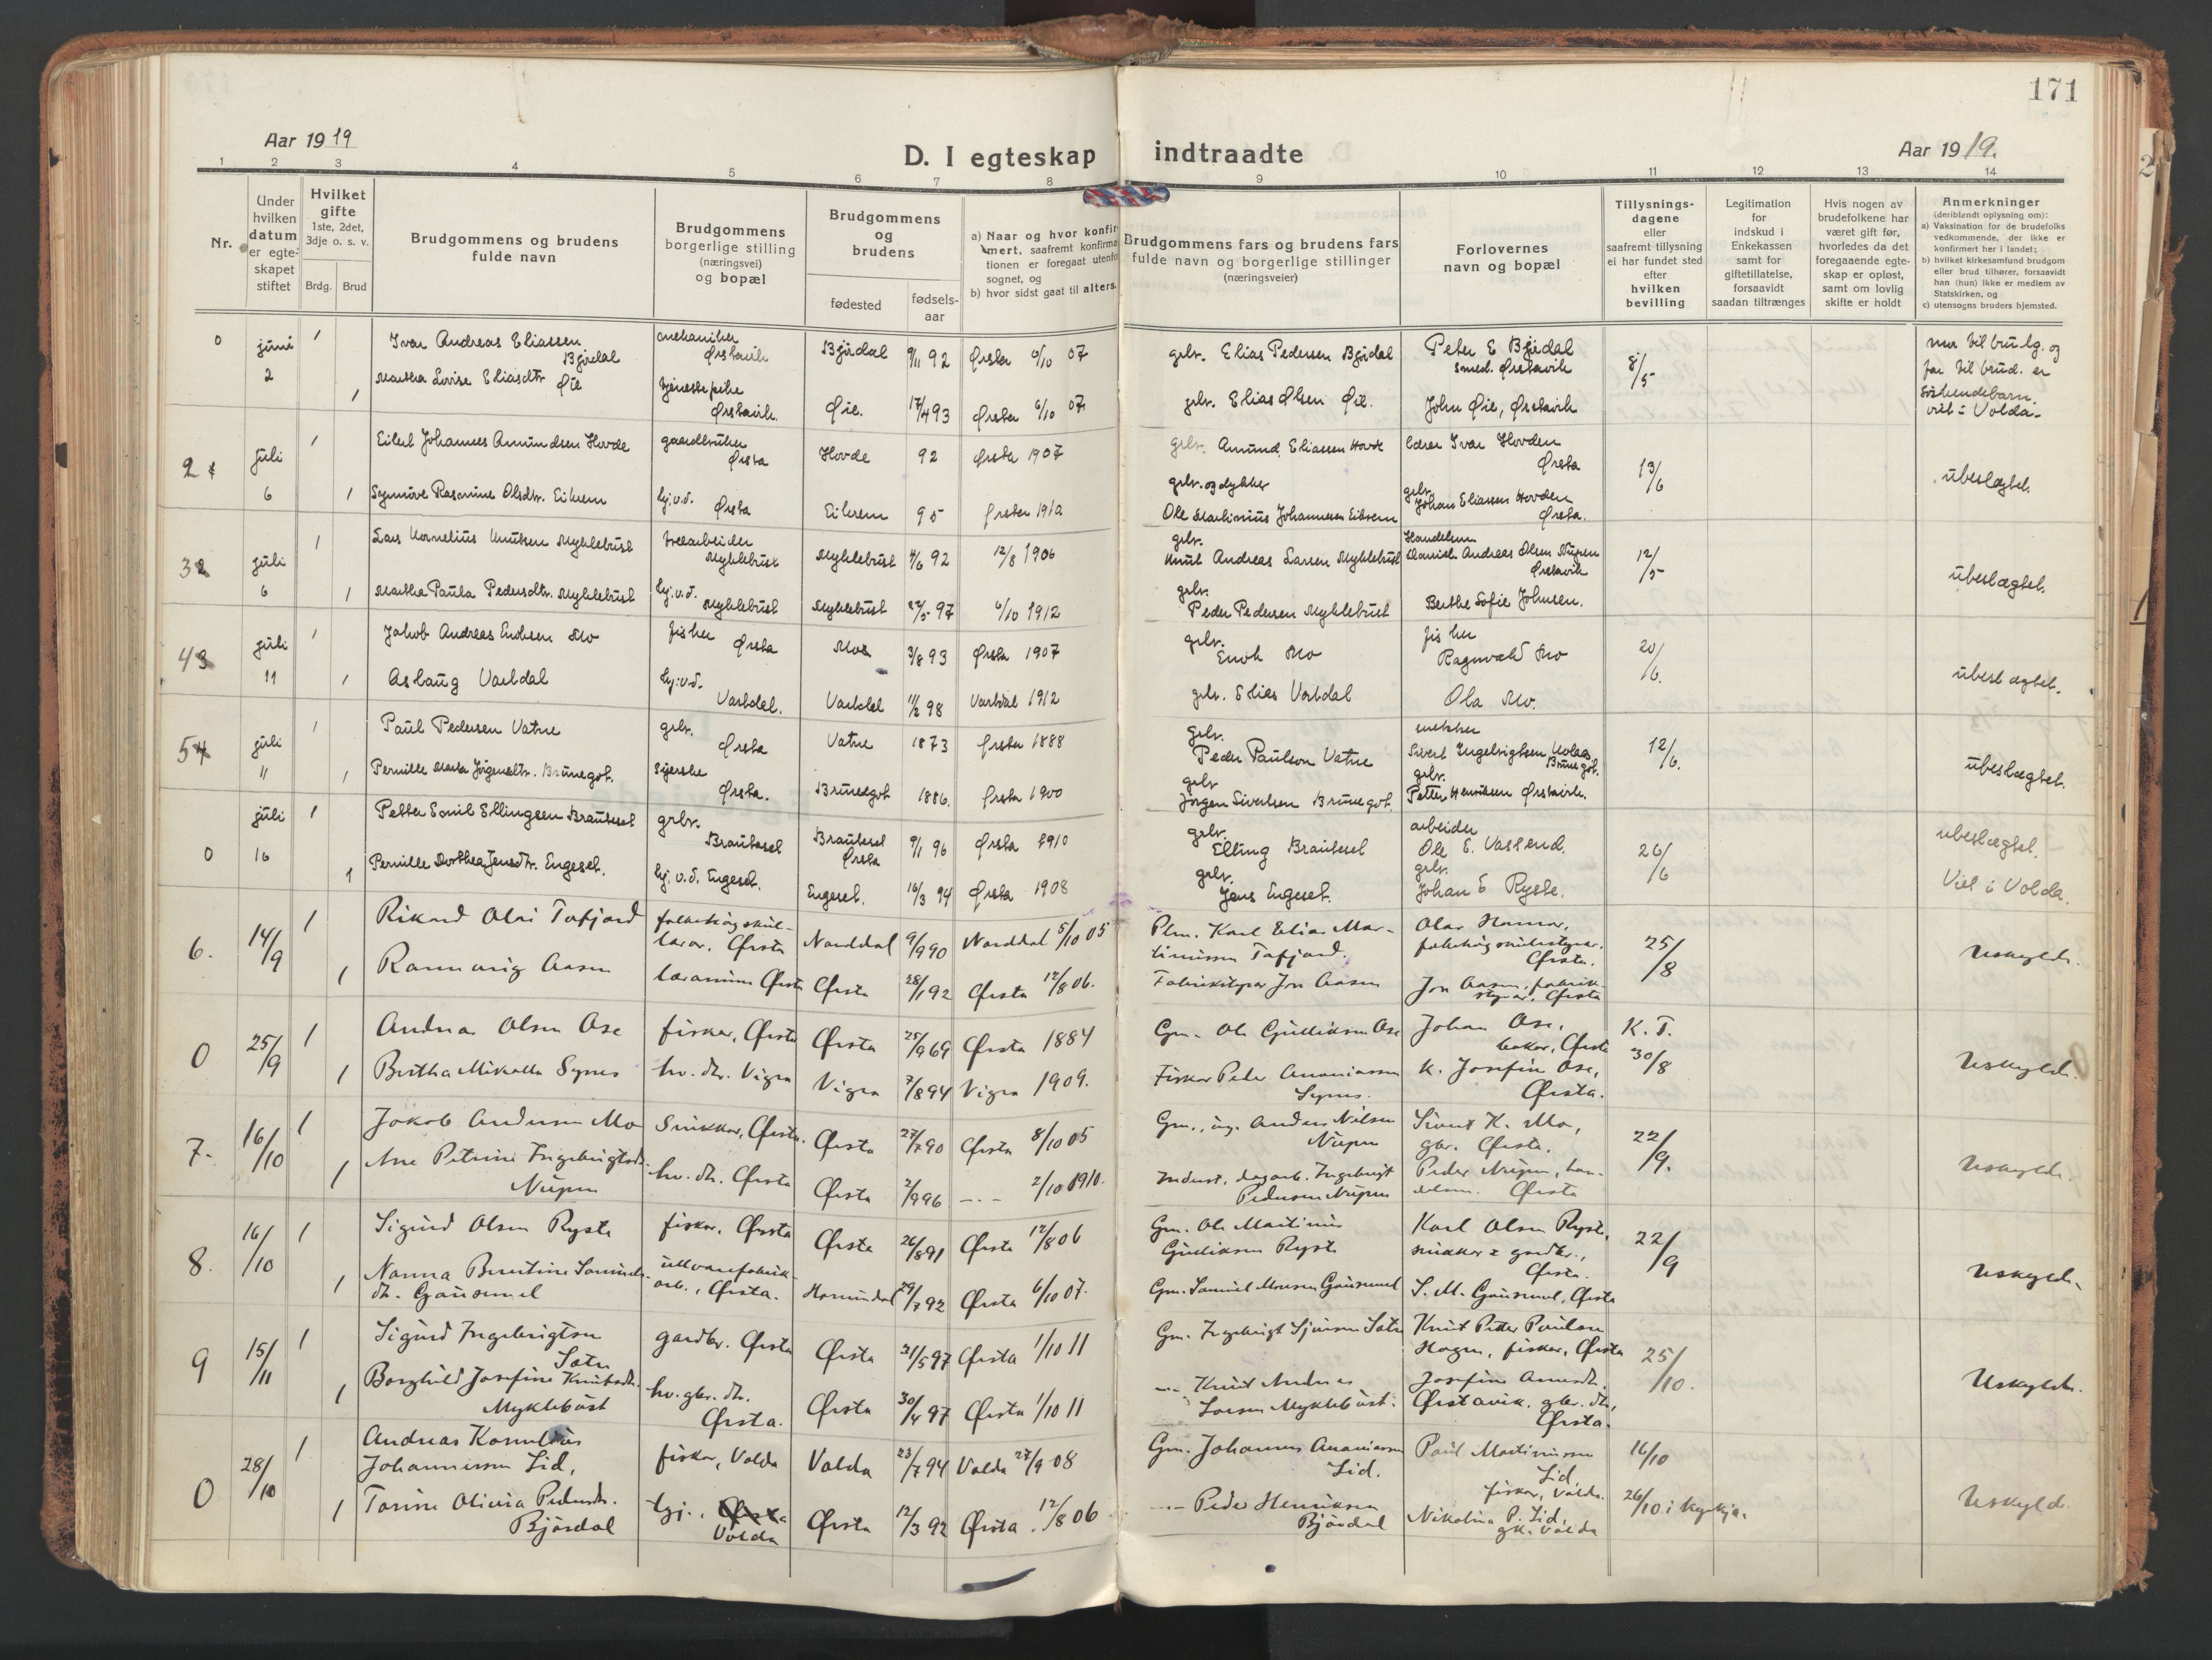 171
Aar 1919
D. I egteskap indtraadte
Aar 1919.
1 2 3 4 5 6 7 8 9 10 11 12 13 14
Nr.
Under hvilken datum er egte-skapet stiftet
Hvilket gifte 1ste, 2det, 3dje o. s. v.
Brdg. Brud
Brudgommens og brudens fulde navn
Brudgommens borgerlige stilling (næringsvei) og bopæl
Brudgommens og brudens
fødested
fødsels-aar
a) Naar og hvor konfir-mert, saafremt konfirma-tionen er foregaat utenfor sognet, og
b) hvor sidst gaat til alters.
Brudgommens fars og brudens fars fulde navn og borgerlige stillinger (næringsveier)
Forlovernes navn og bopæl
Tillysnings-dagene eller saafremt tillysning ei har fundet sted efter hvilken bevilling
Legitimation for indskud i Enkekassen samt for giftetillatelse, forsaavidt saadan tiltrænges
Hvis nogen av brudefolkene har været gift før, hvorledes da det foregaaende egte-skap er opløst, samt om lovlig skifte er holdt
Anmerkninger (deriblandt oplysning om):
a) Vaksination for de brudefolks vedkommende, der ikke er konfirmert her i landet;
b) hvilket kirkesamfund brudgom eller brud tilhører, forsaavidt han (hun) ikke er medlem av Statskirken, og
c) utensogns bruders hjemsted.
0 juni 2 1 Ivar Andreas Eliassen Bjørdal mekaniker Ørstavik Bjørdal 9/11 92 Ørsta 6/10 07 grbr. Elias Pedersen Bjørdal Peter E Bjørdal smed. Ørstavik 8/5
mor til brudg. og far til brud. er søskendebarn. viet i Volda.
1 Martha Lovise Eliasdtr. Øie tjenestepike Ørstavik. Øie. 17/4 93 Ørsta 6/10 07 grbr. Elias Olsen Øie. John Øie, Ørstavik
2 juli 6 1 Eilert Johannes Amundsen Hovde gaardbruker Ørsta Hovde 92 Ørsta 1907 grbr. Amund Eliassen Hovde lærer Ivar Hovden Ørsta 13/6 ubeslægtet.
1 Synnøve Rasmine Olsdtr. Eikrem hj.v.d. Ørsta Eikrem 95 Ørsta 1910 grbr. og dykker Ole Martinius Johannessen Eikrem grbr. Johan Eliassen Hovden Ørsta.
3 juli 6 1 Lars Kornelius Knutsen Myklebust trearbeider Myklebust Myklebust 4/6 92 12/8 1906 grbr. Knut Andreas Larsen Myklebust Handelsm Daniel Andreas Olsen Nupen Ørstavik 12/5 ubeslægtet.
1 Martha Paula Pedersdtr. Myklebust hj.v.d. Myklebust Myklebust 27/5 97 6/10 1912 grbr. Peder Pedersen Myklebust Berthe Sofie Johnsen.
4 juli 11 1 Jakob Andreas Enoksen Mo fisker Ørsta Mo 3/8 93 Ørsta 1907 grbr. Enok Mo fisker Ragnvald Mo 20/6. ubeslægtet.
1 Aslaug Vartdal hj.v.d. Vartdal. Vartdal 11/2 98 Vartdal 1912 grbr. Elias Vartdal Ola Mo.
5 juli 11 1 Paul Pedersen Vatne grbr. Ørsta Vatne 1873 Ørsta 1888 grbr. Peder Paulsen Vatne snekker Sivert Ingebrigtsen Brunegot. 12/6. ubeslægtet.
1 Pernille Marta Jørgensdtr. Brunegot. syerske Ørsta. Brunegot 1886. Ørsta 1900 grbr Jørgen Sivertsen Brunegot. grbr. Petter Henriksen Ørstavik.
0 juli 16 1 Petter Emil Ellingsen Brautaset grbr. Brautaset Brautaset Ørsta 9/1 96 Ørsta 1910 grbr. Elling Brautaset arbeider Ole E. Vassend. 26/6 ubeslægtet.
1 Pernille Dorthea Jensdtr. Engeset. hj.v.d. Engeset. Engeset. 16/3 94 Ørsta 1908 grbr. Jens Engeset. grbr. Johan E Ryste. Viet i Volda.
6. 14/9 1 Rikard Olai Tafjord folkehøgskul-lærar. Ørsta Norddal 9/9 90 Norddal 5/10 05 Plm. Karl Elias Mar-tinussen Tafjord. Olav Hamar, folkehøgskulestyrar. Ørsta. 25/8 Uskylde.
1 Rannveig Aasen lærarinne Ørsta Ørsta 28/1 92 Ørsta 12/8 06. Fabrikstyrar Jon Aasen Jon Aasen, fabrik-styrar, Ørsta
0 25/9 1 Andreas Olsen Ose fiskar, Ørsta Ørsta 25/9 69 Ørsta 1884 Gm. Ole Gjulliksen Ose Johan Ose, bakar, Ørsta K. T. 30/8 Uskylde.
1 Bertha Mikalla Synes hv. dtr. Vigra Vigra 7/8 94 Vigra 1909. Fiskar Peder Ananiassen Synes. K. Josefine Ose, Ørsta.
7. 16/10 1 Jakob Andersen Mo Snikkar, Ørsta. Ørsta 27/7 90 Ørsta 8/10 05 Gm., Anders Nilsen Nupen Sivert K. Mo, gbr. Ørsta. 22/9. Uskylde.
1 Ane Petrine Ingebrigtsdtr. Nupen hv. dtr. Ørsta Ørsta 2/9 96 -"- 2/10 1910. Indust. dagarb. Ingebrigt Pedersen Nupen Peder Nupen, han-delsm. Ørsta
8. 16/10 1 Sigurd Olsen Ryste fiskar, Ørsta Ørsta 26/8 91 Ørsta 12/8 06 Gm. Ole Martinus Gjulliksen Ryste Karl Olsen Ryste, snikkar & gardbr., Ørsta. 22/9 Uskylde.
1 Nanna Berntine Samuels-dtr. Gausemel ullvarefabrik-arb., Ørsta. Hornindal 29/7 92 Ørsta 6/10 07. Gm. Samuel Monsen Gausemel S. M. Gausemel, Ørsta
9 15/11 1 Sigurd Ingebrigtsen Sætre gardbr. Ørsta Ørsta 21/5 97 Ørsta 1/10 11 Gm. Ingebrigt Sjursen Sætre Knut Peter Paulsen Hagen, fiskar, Ørsta 25/10. Uskylde.
1 Borghild Josefine Knutsdtr. Myklebust hv. gbr. dtr. Ørsta. Ørsta 30/4 97 Ørsta 1/10 11 -"- Knut Andreas Larsen Myklebust. Josefine Ørstavik, gbr. dtr., Ørsta.
0 28/10 1 Andreas Kornelius Johannessen Lid, fiskar, Volda Volda 23/7 94 Volda 27/9 08 Gm. Johannes Ananiassen Lid. Paul Martinussen Lid, fiskar, Volda. 16/10 Uskyld.
1 Tarine Olivia Pedersdtr. Bjørdal tj., Volda Ørsta 12/3 92 Ørsta. 12/8 06 -"- Peder Henriksen Bjørdal Nikolina P. Lid, Volda 26/10 i kyrkja.